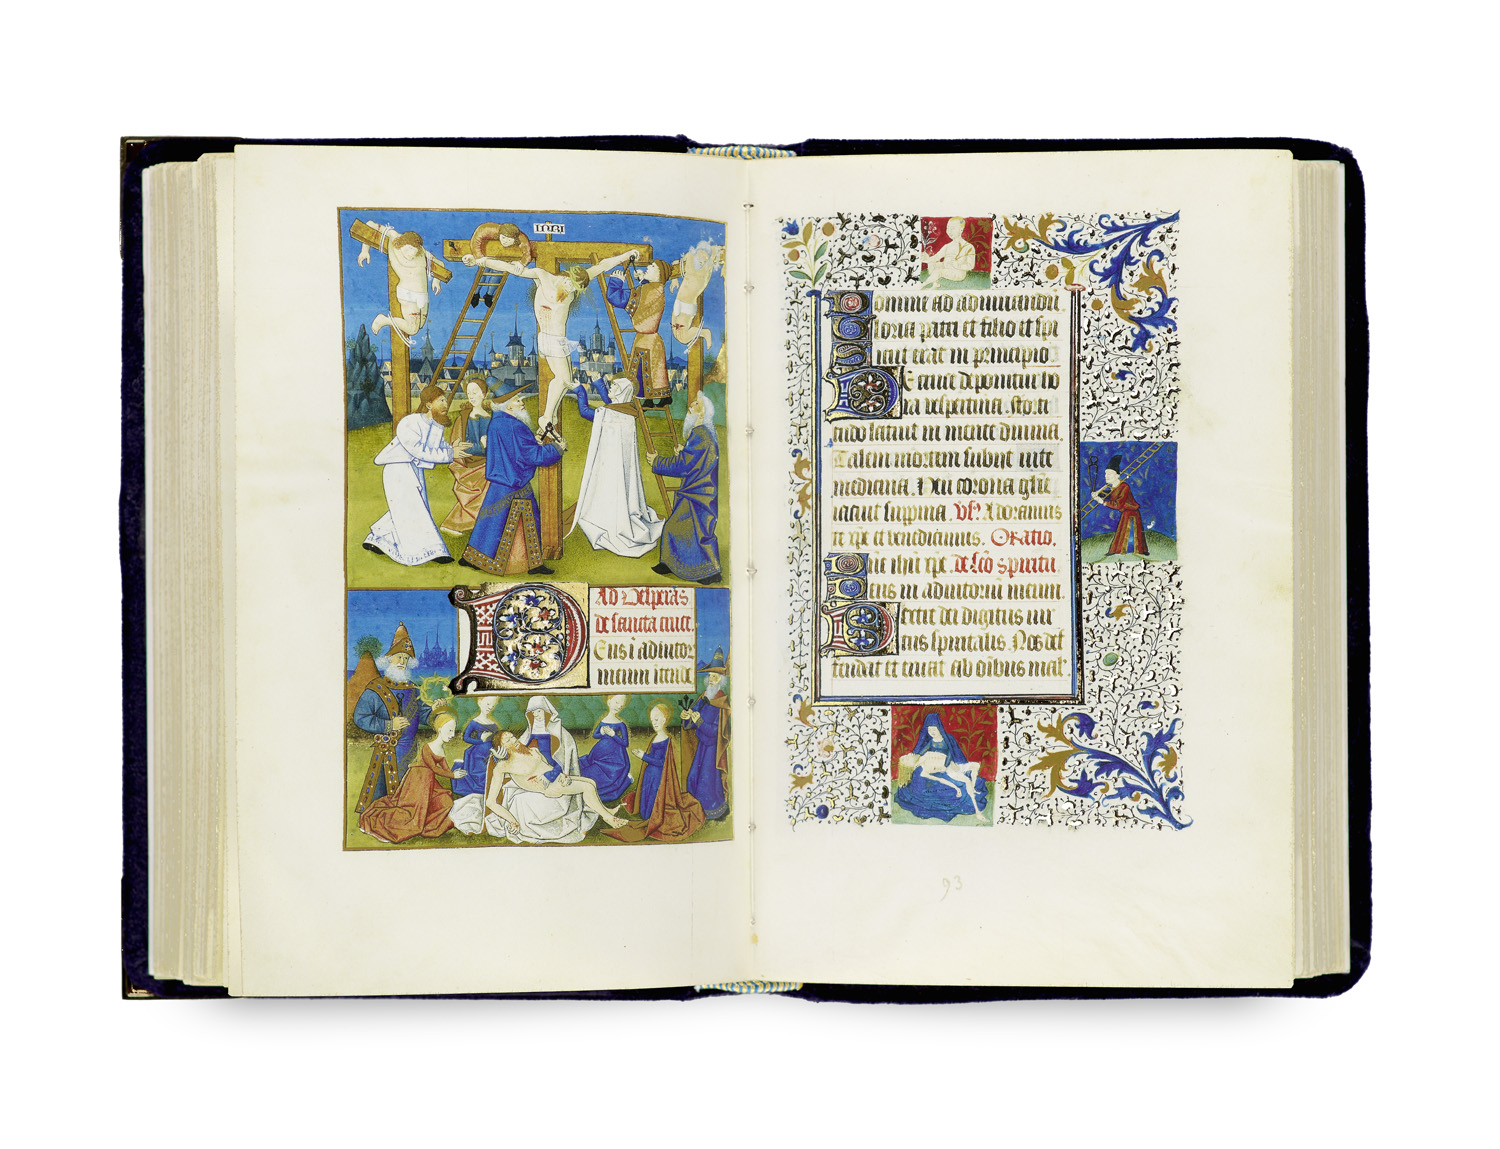 INRI
Ad vesperas
de sancta cruce.
Eus i adiutor
meum itende
Domine ad adiuuandu
Gloria patri et filio et spi
Sicut erat in principio
De cruce deponitur ho
ra vespertina. forti
tudo latuit in mente diuina.
Talem mortem subiit uite
medicina. Heu corona glie
iacuit supina. Vs. Adoramus
te xpe et benedicimus. Oratio.
Dne ihu xpe. De sco spiritu.
Deus in adiutoriu meum.
Dextre dei digitus uir
tus spiritalis. Nos def
fendat et eruat ab oibus mal
93